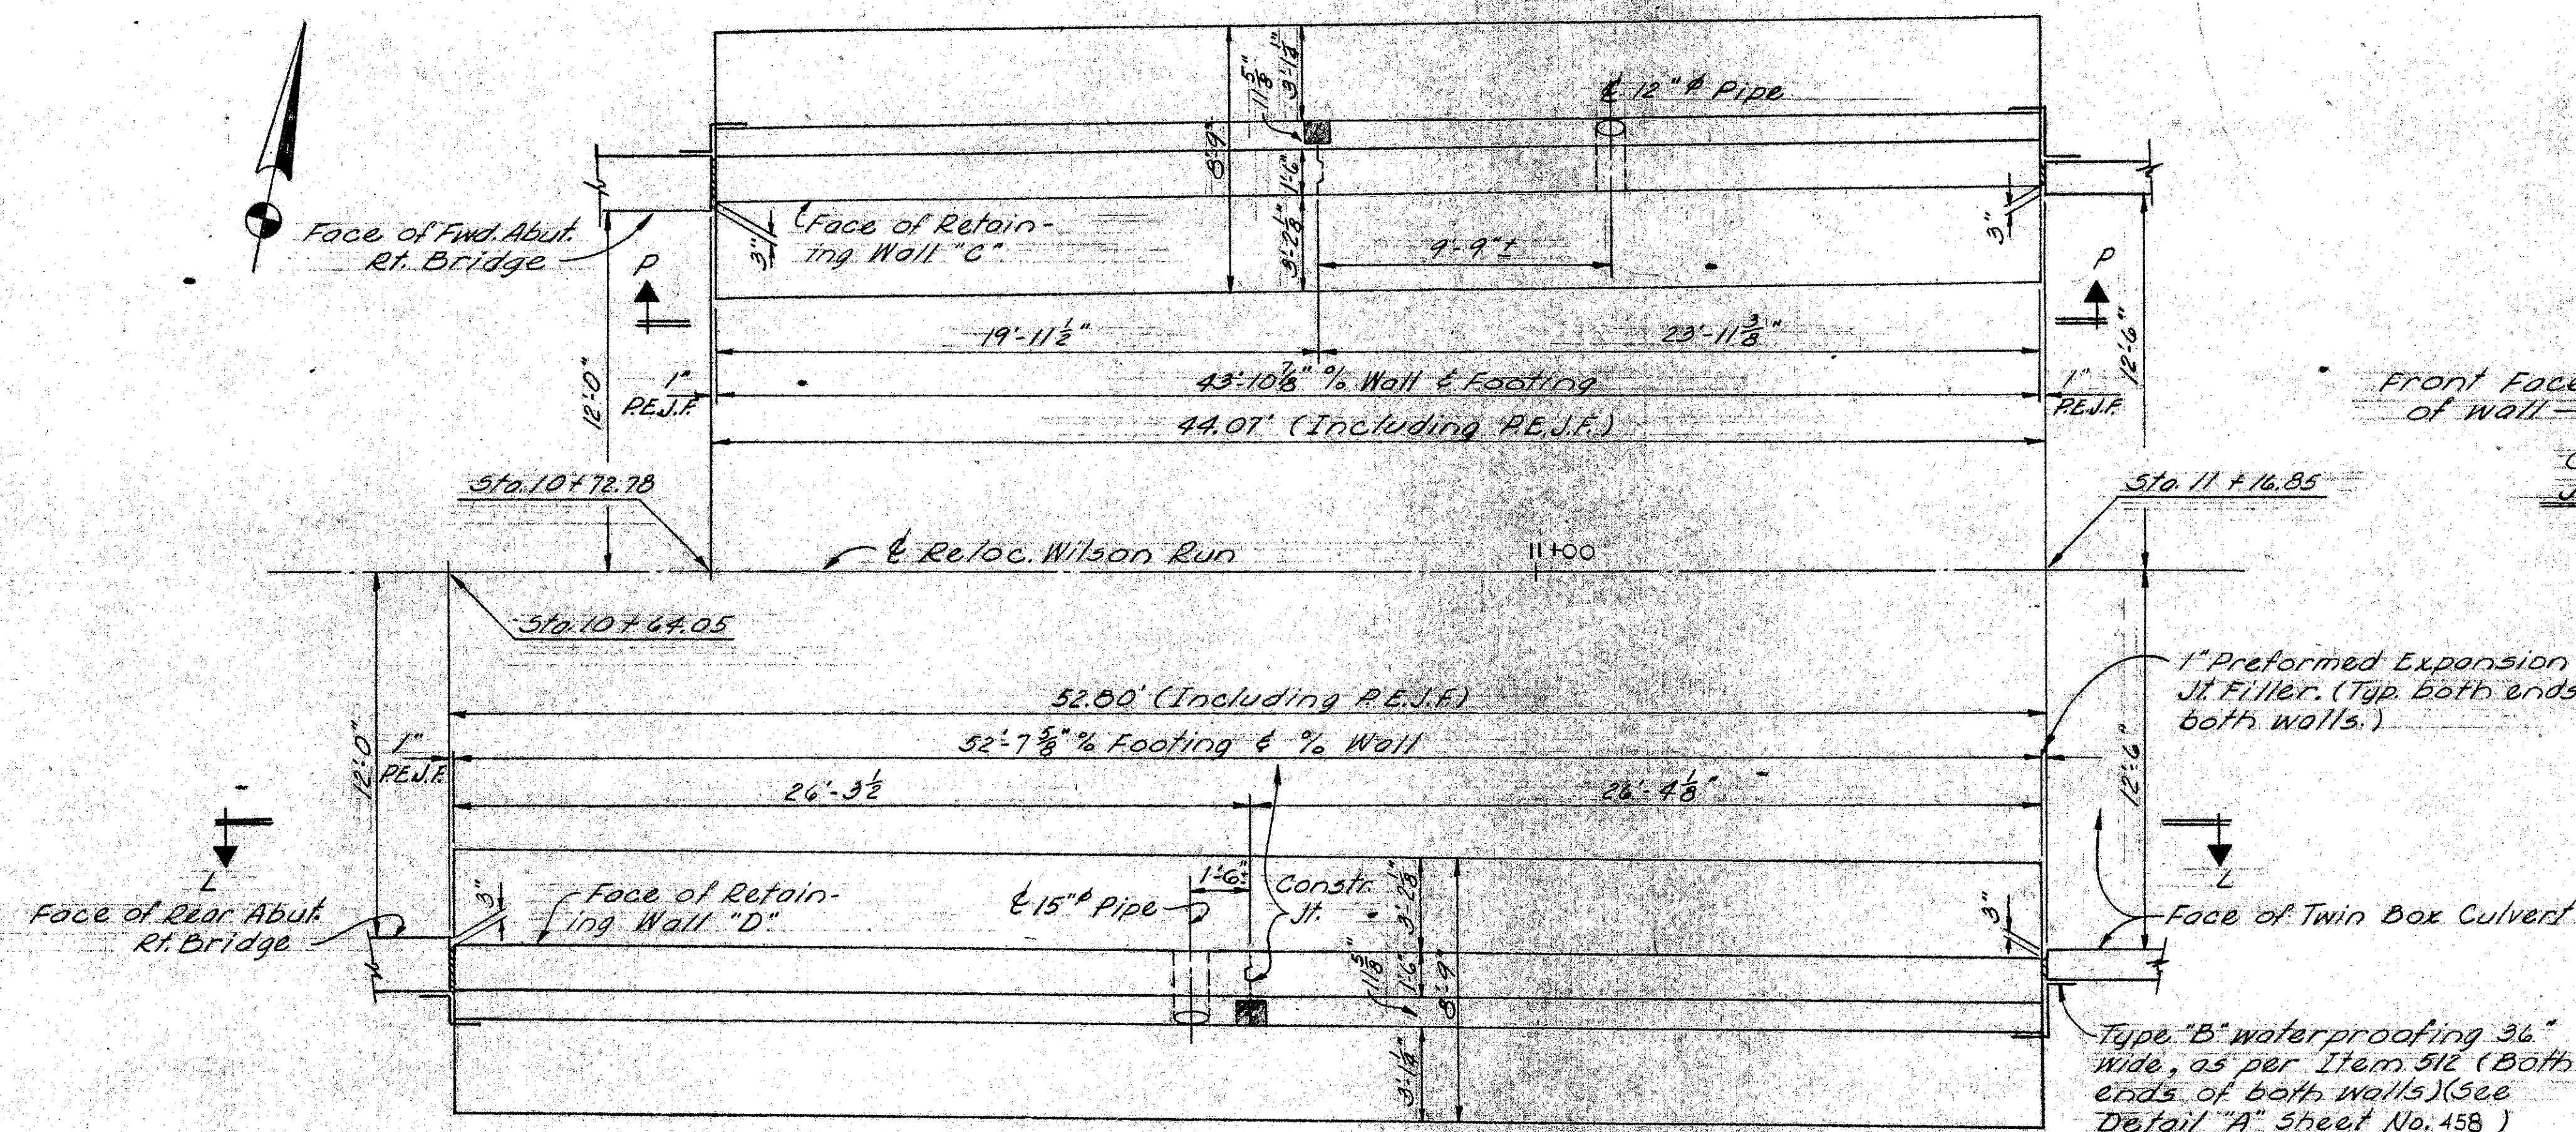 3'-1 1/4"
11 5/8"
℄ 12"⌀ Pipe
8'-9"
1'-6"
3'-2 1/8"
Face of Fwd. Abut.
Rt. Bridge
3"
Face of Retain-
ing Wall "C"
9'-9"±
3"
P
P
19'-11 1/2"
23'-11 3/8"
12'-0"
1"
P.E.J.F.
43'-10 7/8" % Wall & Footing
1"
P.E.J.F.
12'-6"
44.07' (Including P.E.J.F.)
Front Face
of wall
Sta. 10+72.78
Sta. 11+16.85
℄ Reloc. Wilson Run
11+00
Sta. 10+64.05
1" Preformed Expansion
Jt. Filler. (Typ. both ends
both walls.)
52.80' (Including P.E.J.F.)
12'-0"
1"
P.E.J.F.
52'-7 5/8" % Footing & % Wall
12'-6"
26'-3 1/2
26'-4 1/8"
L
L
Face of Rear Abut.
Rt. Bridge
3"
Face of Retain-
ing Wall "D"
℄ 15"⌀ Pipe
1'-6"±
Constr.
Jt.
3'-2 1/8"
11 5/8"
1'-6"
8'-9"
3'-1 1/4"
3"
Face of Twin Box Culvert
Type "B" waterproofing 36"
wide, as per Item 512 (Both
ends of both walls)(See
Detail "A" Sheet No. 458 )